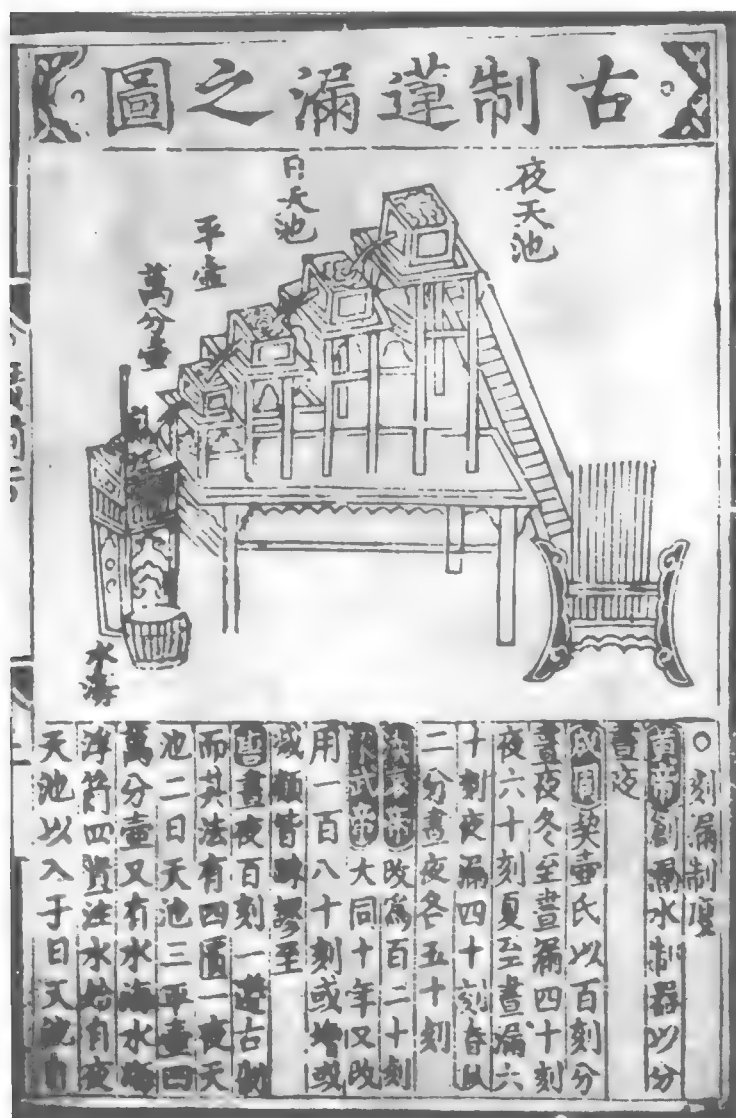 古制蓮漏之圖
夜天池
日天池
平壺
萬分壺
水海
○刻漏制度
黃帝創漏水制器以分
晝夜
成周挈壺氏以百刻分
晝夜冬至晝漏四十刻
夜六十刻夏至晝漏六
十刻夜漏四十刻春秋
二分晝夜各五十刻
漢哀帝改爲百二十刻
梁武帝大同十年又改
用一百八十刻或增或
減類皆疎謬至
晝夜百刻一遵古制
而其法有四匱一夜天
池二日天池三平壺四
萬分壺又有水海水海
浮箭四匱注水始自夜
天池以入于日天池自